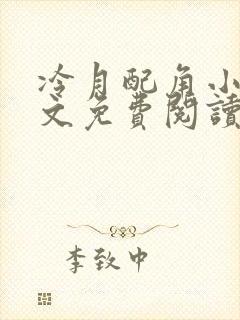 冷月配角小
文免費閱讀
李致中